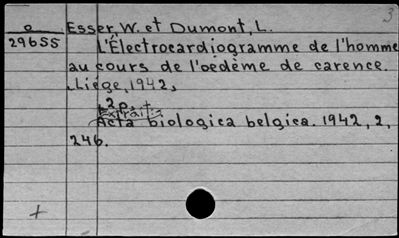 3
o Esser, W. et Dumont, L.
29655 L'Électrocardiogramme de l'homme
au cours de l'oedème de carence.
Liége, 1942,
2 p.
Extrait:
Acta biologica belgica. 1942, 2,
246.
+